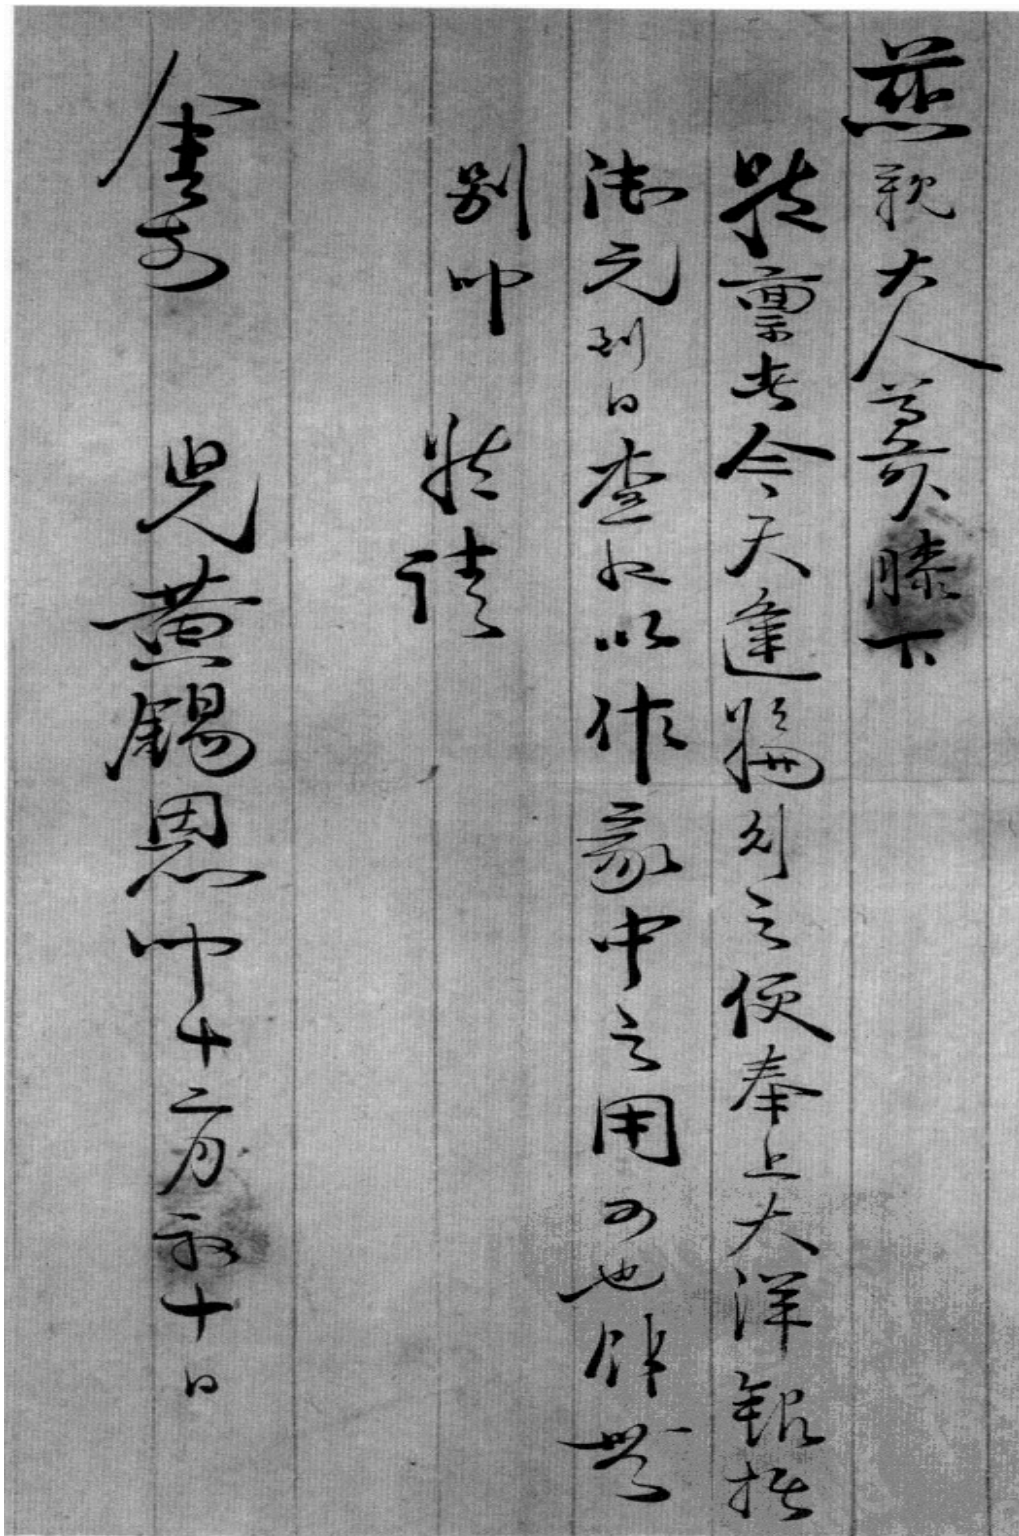 慈親大人尊前膝下
敬稟者今天逢輪船之便奉上大洋銀拾
陆元到日查收以作家中之用可也餘無
別叩 敬請
金安 兒黃錫恩叩十二月初十日